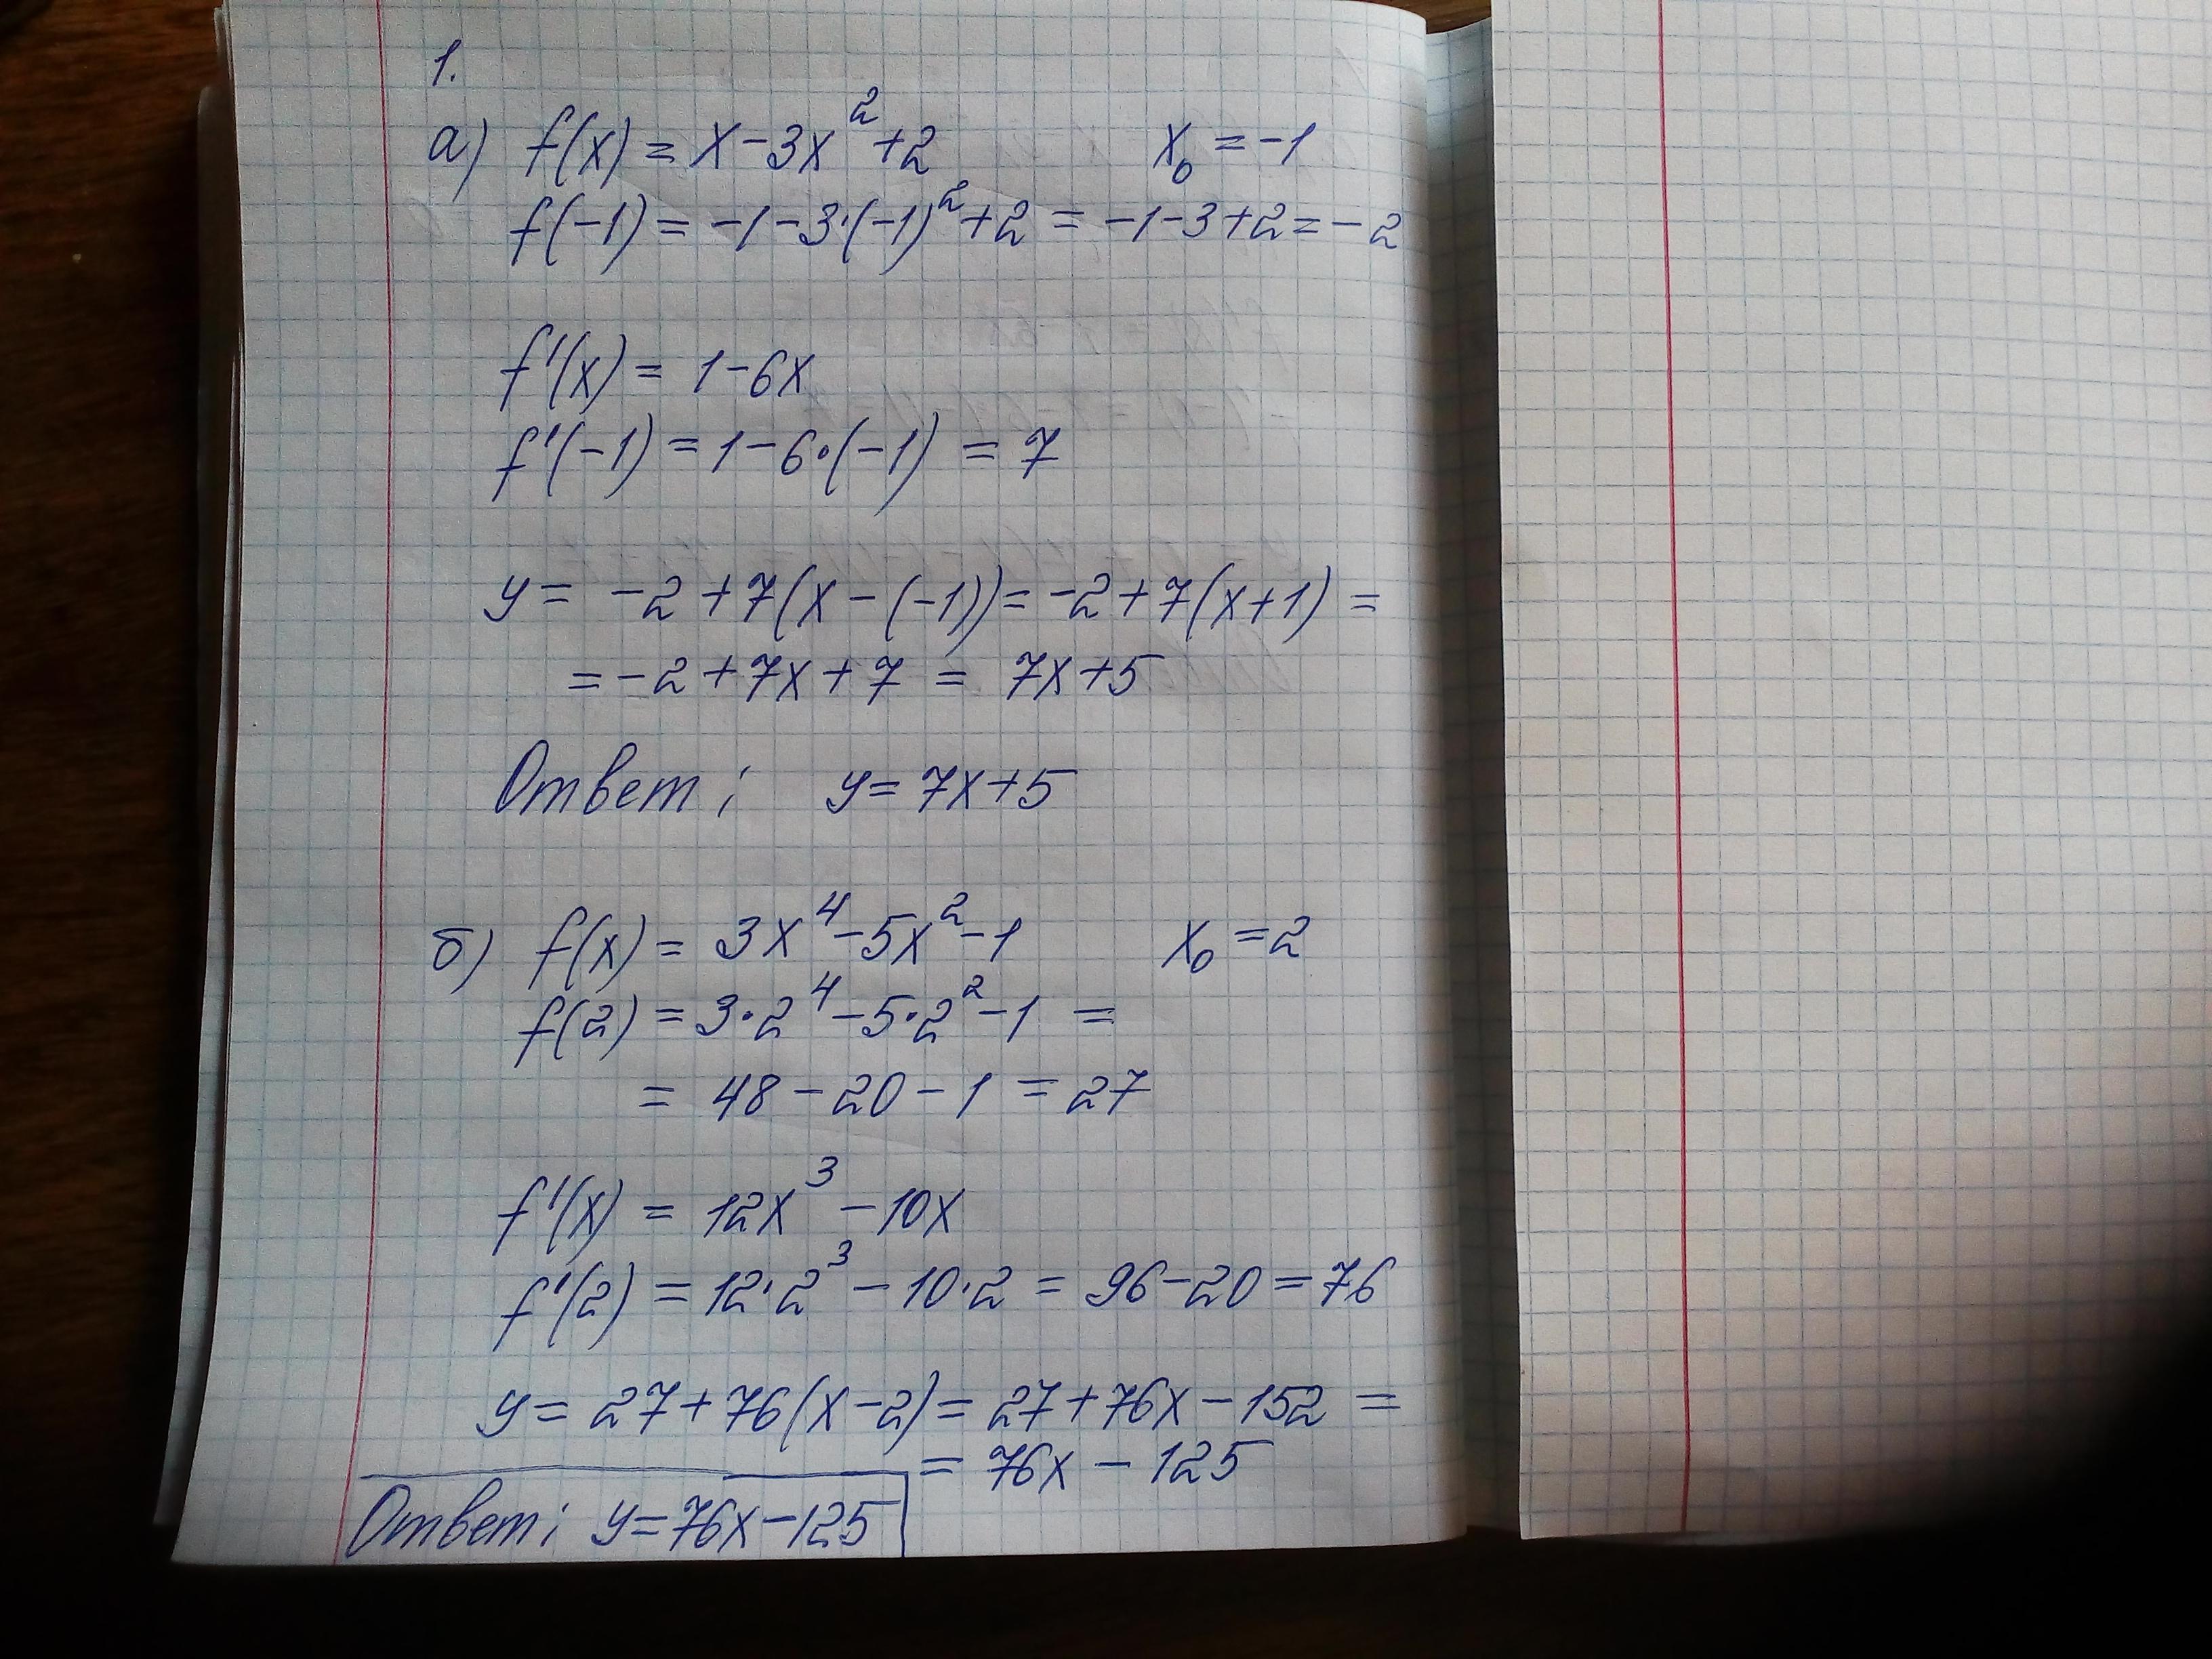 1.
а) f(x) = x - 3x² + 2 x₀ = -1
f(-1) = -1 - 3·(-1)² + 2 = -1 - 3 + 2 = -2
f'(x) = 1 - 6x
f'(-1) = 1 - 6·(-1) = 7
y = -2 + 7(x - (-1)) = -2 + 7(x + 1) =
= -2 + 7x + 7 = 7x + 5
Ответ: y = 7x + 5
б) f(x) = 3x⁴ - 5x² - 1 x₀ = 2
f(2) = 3·2⁴ - 5·2² - 1 =
= 48 - 20 - 1 = 27
f'(x) = 12x³ - 10x
f'(2) = 12·2³ - 10·2 = 96 - 20 = 76
y = 27 + 76(x - 2) = 27 + 76x - 152 =
= 76x - 125
Ответ: y = 76x - 125